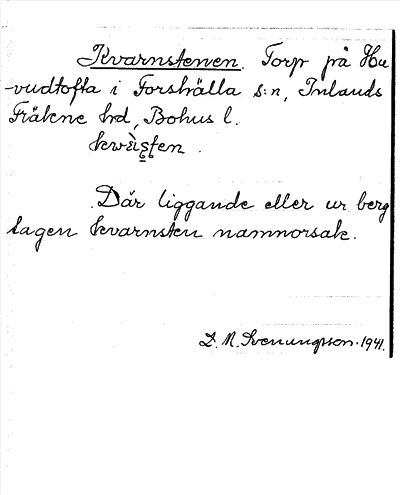 Kvarnstenen. Torp på Hu
-vudtofta i Forshälla s:n, Inlands
Fräkne hd, Bohus l.
Där liggande eller ur berg
tagen kvarnsten namnorsak.
D. N. Svenungsson. 1941.